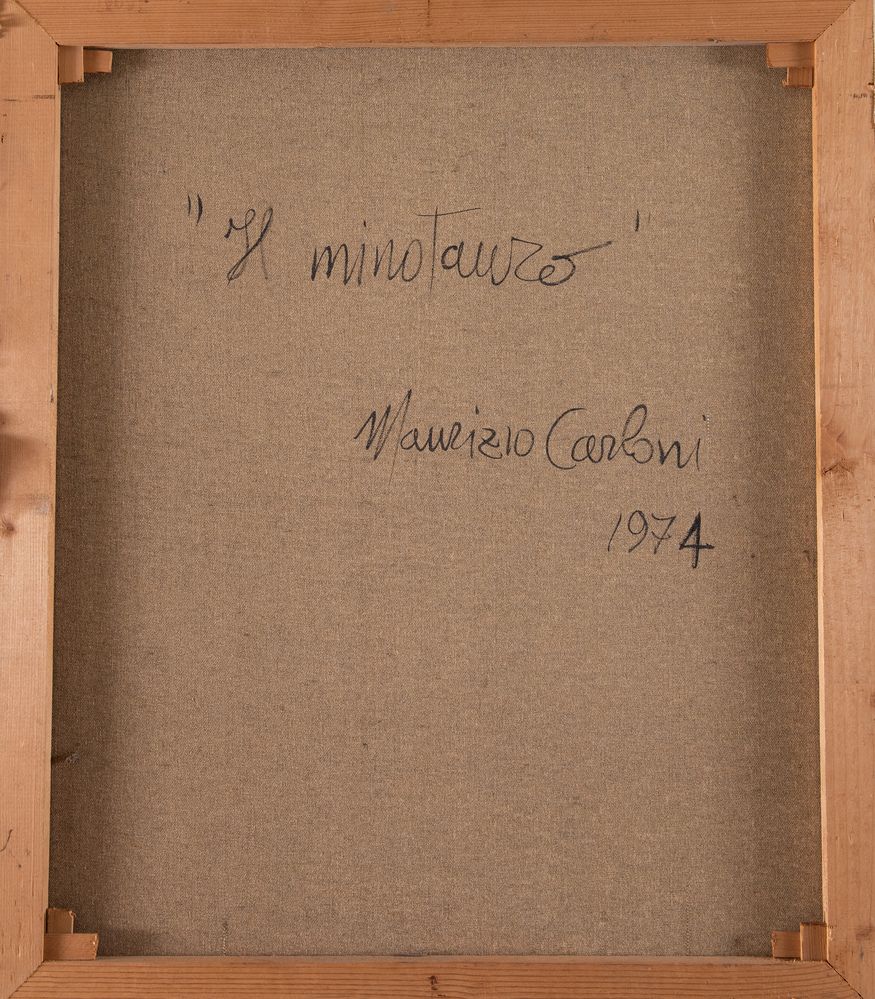 "Il minotauro"
Maurizio Carloni
1974